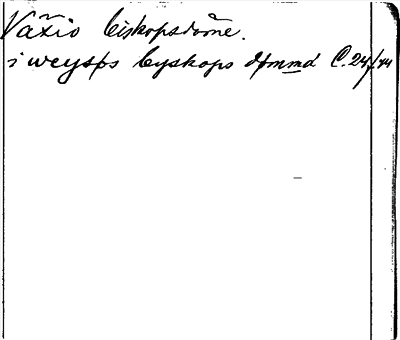 Växio biskopsdöme.
i weysþs byskops dømmd C. 24/7 44